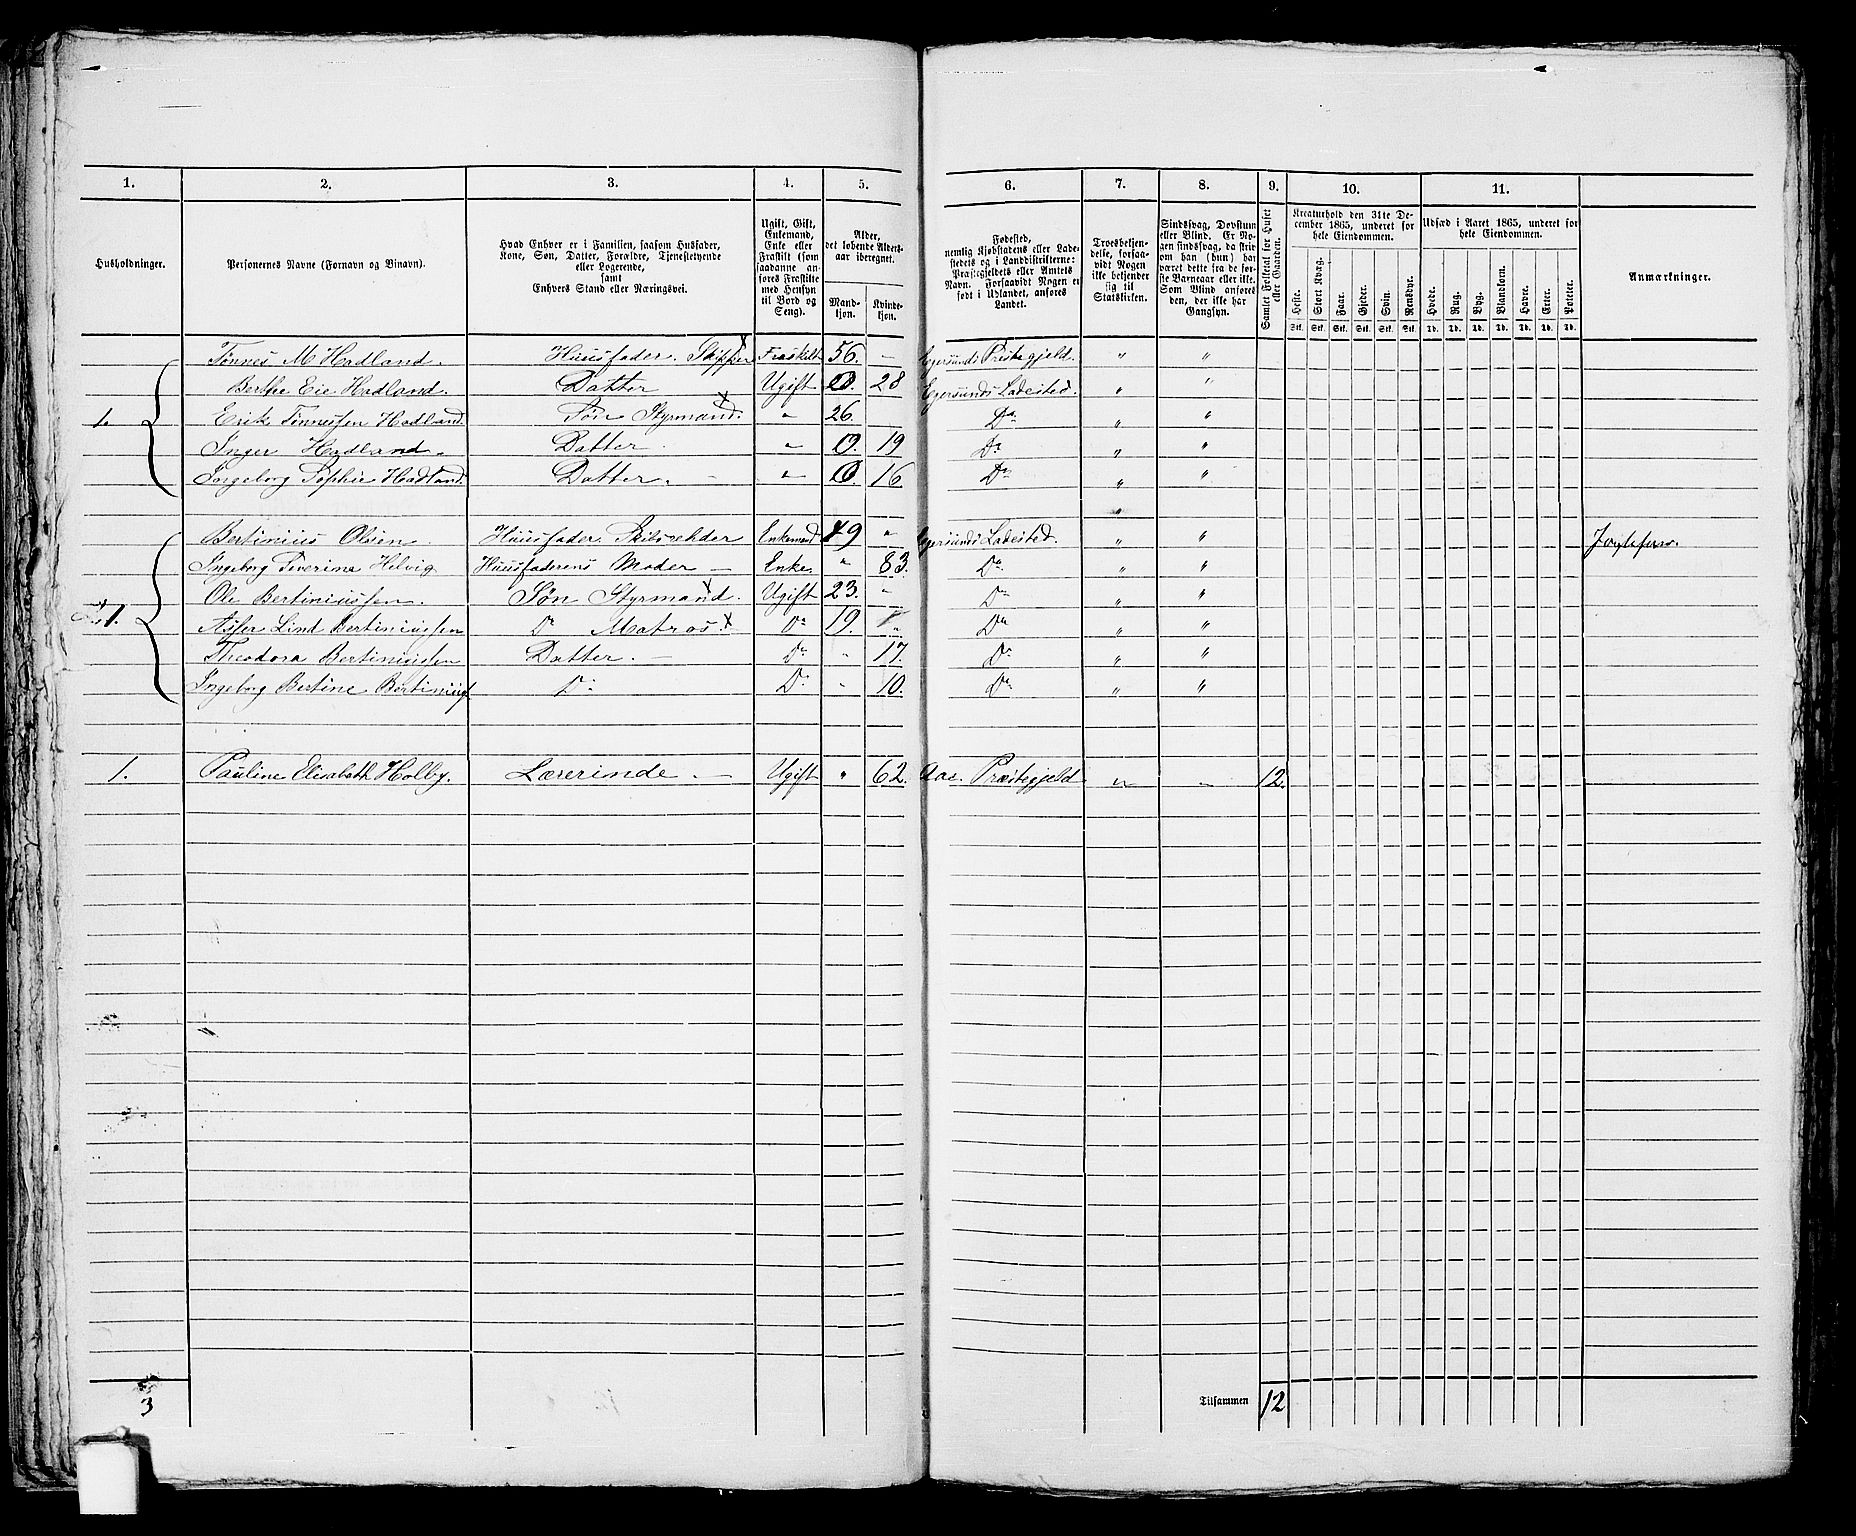 1. 2. 3. 4. 5. 6. 7. 8. 9. 10. 11.
Husholdninger.
Personernes Navne (Fornavn og Binavn).
Hvad Enhver er i Familien, saasom Husfader,
Kone, Søn, Datter, Forældre, Tjenestetyende
eller Logerende,
samt
Enhvers Stand eller Næringsvei.
Ugift, Gift,
Enkemand,
Enke eller
Fraskilt (som
saadanne an-
føres Fraskilte
med Hensyn
til Bord og
Seng).
Alder,
det løbende Alders-
aar iberegnet.
Mand-
kjøn.
Kvinde-
kjøn.
Fødested,
nemlig Kjøbstadens eller Lade-
stedets og i Landdistrikterne:
Præstegjeldets eller Amtets
Navn. Forsaavidt Nogen er
født i Udlandet, anføres
Landet.
Troesbekjen-
delse, forsaa-
vidt Nogen
ikke bekjender
sig til
Statskirken.
Sindssvag, Døvstum
eller Blind. Er No-
gen sindssvag, da skriv
om han (hun) har
været dette fra de før-
ste Barneaar eller ikke.
Som Blind anføres
den, der ikke har
Gangsyn.
Samlet Folketal for Huset
eller Gaarden.
Kreaturhold den 31te De-
cember 1865, underet for
hele Eiendommen.
Heste. Stort Kvæg. Faar. Gjeder. Svin. Rensdyr.
Stk. Stk. Stk. Stk. Stk. Stk.
Udsæd i Aaret 1865, underet for
hele Eiendommen.
Hvede. Rug. Byg. Blandkorn. Havre. Erter. Poteter.
Td. Td. Td. Td. Td. Td. Td.
Anmærkninger.
Tønnes M Hadland. Huusfader. Skipper Fraskilt 56. — Egersunds Præstegjeld. " "
Berthe Eie Hadland. Datter Ugift 0. 28 Egersunds Ladested. " "
1. Erik Tønnesen Hadland. Søn Styrmand. " 26. Do " "
Inger Hadland. Datter — " 0. 19 Do " "
Ingeborg Sophie Hadland. Datter. — " 0. 16. Do " "
"
Bertinius Olsen. Huusfader Enkemand 49 " Egersunds Ladested. " "
Ingeborg Helvig Huusfaderens Moder — Enke " 83. Do " "
Ole Bertiniussen. Søn Styrmand. Ugift 23. " Do " "
1. Lind Bertiniussen Do Matros. Do 19. " Do " "
Theodora Bertiniussen Datter. — Do " 17. Do " "
Ingeborg Bertine Do Do " 10. Do " "
1. Pauline Elisabeth Holby. Lærerinde — Ugift " 62. Aas Præstegjeld " " 12.
3 Tilsammen 12